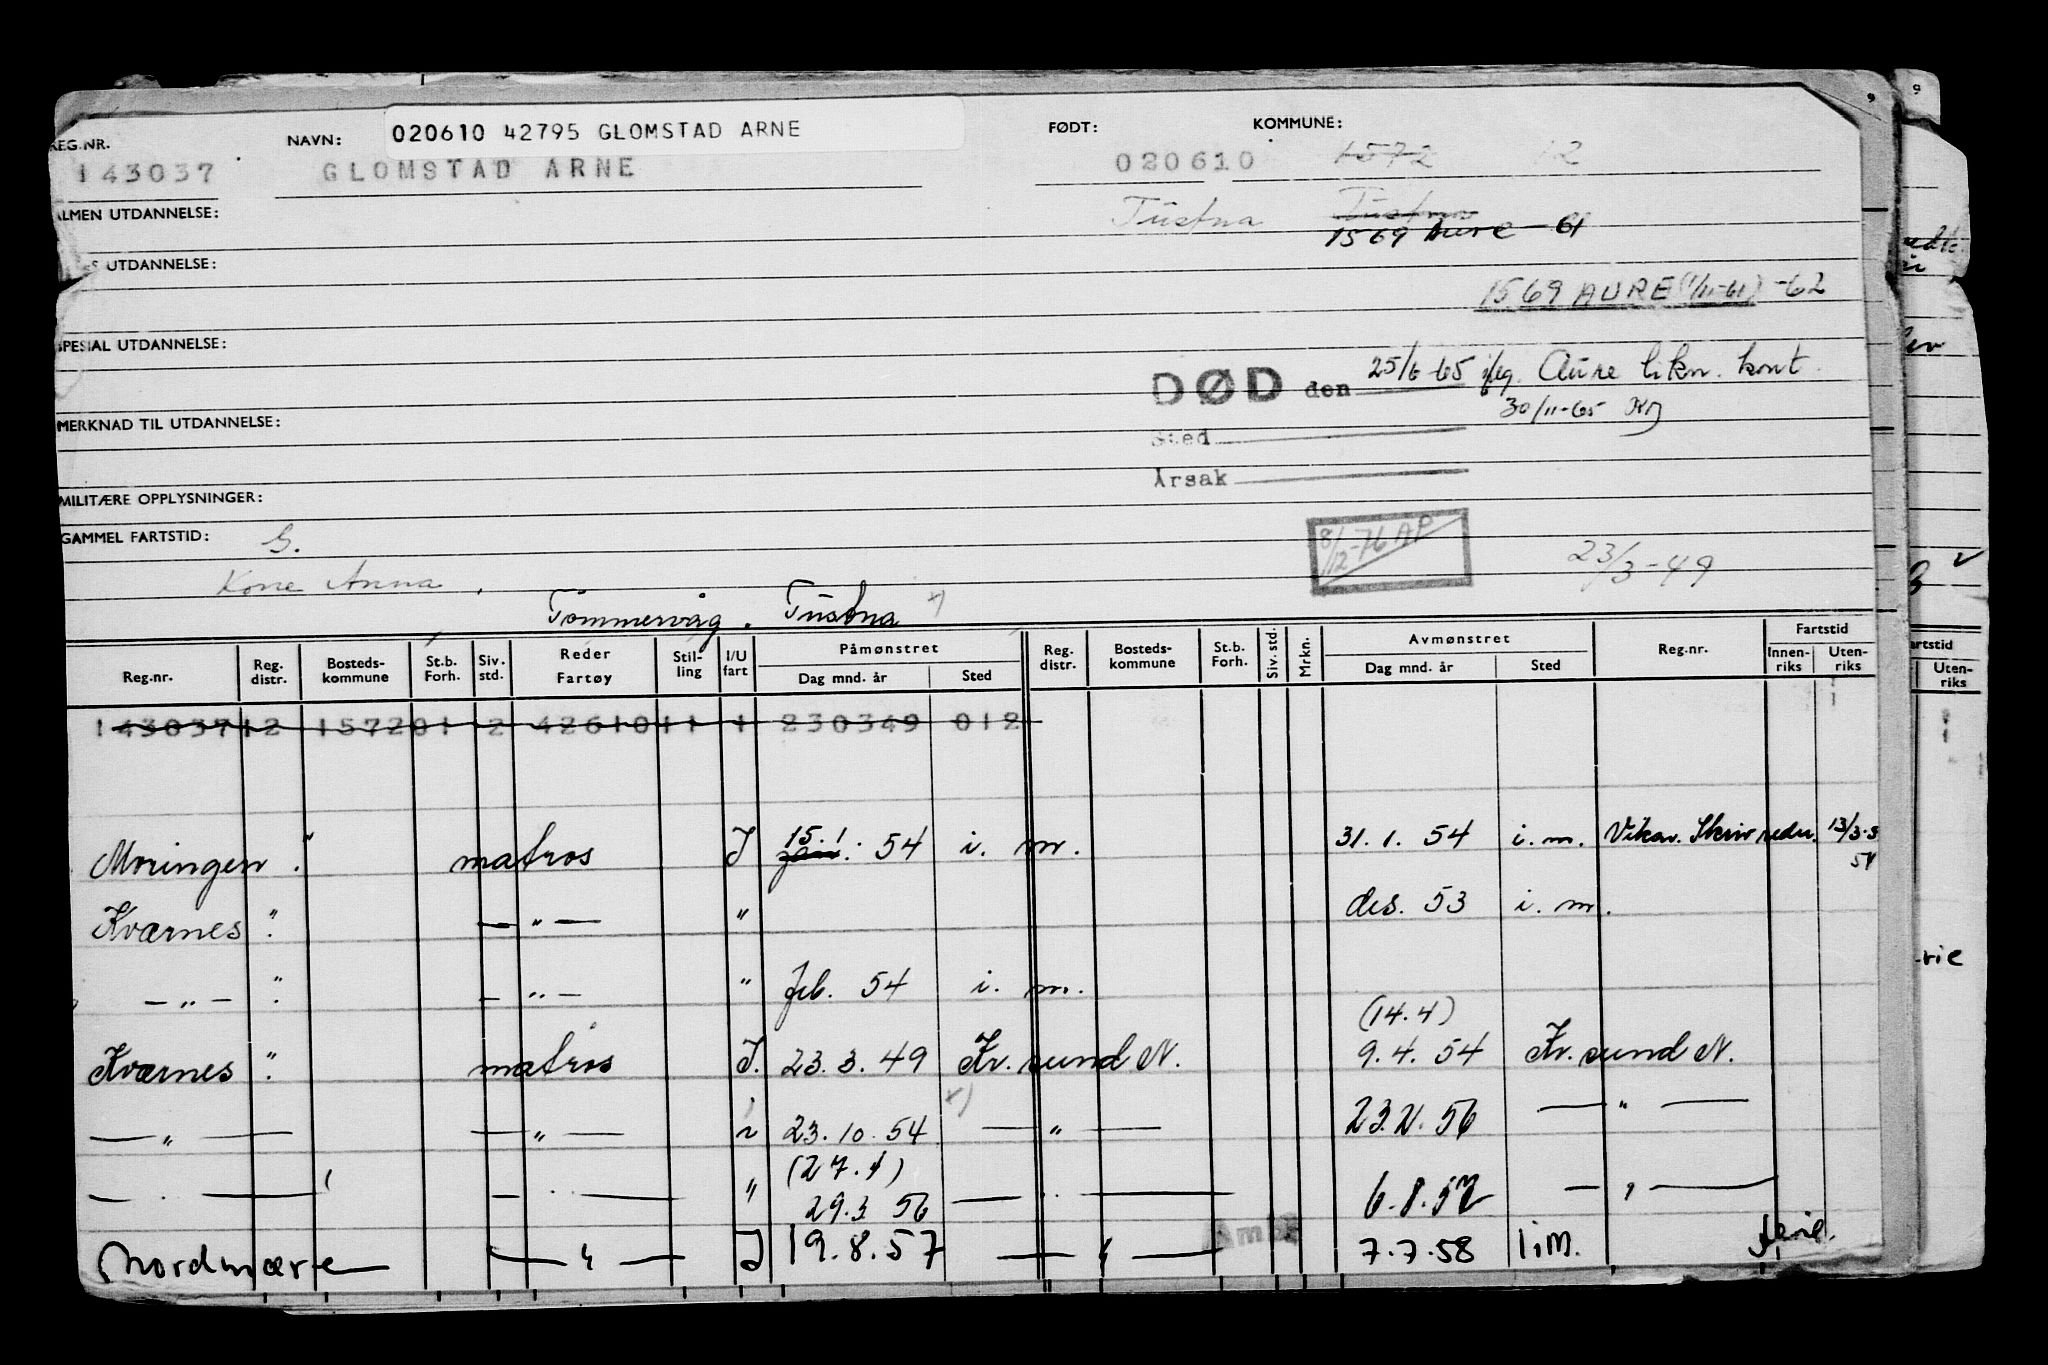 REG.NR. NAVN: 020610 42795 GLOMSTAD ARNE FØDT: KOMMUNE:
143037 GLOMSTAD ARNE 020610 1572 12
ALMEN UTDANNELSE: Tustna Tustna
1569 Aure - 61
UTDANNELSE:
1569 AURE (1/11-61) -62
SPESIAL UTDANNELSE:
DØD den 25/6-65 iflg. Aure likn. kont.
30/11-65
MERKNAD TIL UTDANNELSE:
Sted
Årsak
MILITÆRE OPPLYSNINGER:
GAMMEL FARTSTID: G. 8/12-76 AP 23/3-49
Kone Anna
Tømmervåg. Tustna x)
Reg.nr. Reg. distr. Bosteds- kommune St.b. Forh. Siv. std. Reder Fartøy Stil- ling I/U fart Påmønstret Dag mnd. år Sted Reg. distr. Bosteds- kommune St.b. Forh. Siv. std. Mrkn. Avmønstret Dag mnd. år Sted Reg.nr. Fartstid Innen- riks Uten- riks
143037 12 1572 01 2 42610 11 1 230349 012
Moringen " matros I 15.1. jan. 54 i. m. 31. 1. 54 i. m. Vikar. Skriv reder. 13/3-
54
Kværnes " — " — " des. 53 i. m.
— " — " — " — " feb. 54 i. m.
(14.4)
Kværnes " matros I. 23. 3. 49 Kr. sund N. 9. 4. 54 Kr. sund N.
x)
— " — — " — 23. 10. 54 — " — 23.2. 56 — " —
(27.1)
29.3 56 6.8.57
Nordmøre — " — I 19.8.57 — " — 7.7.58 i.M. ferie.
artstid
Uten- riks
-rie